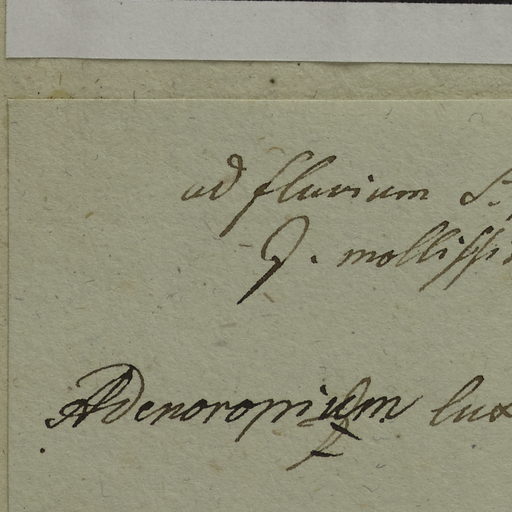 ad fluvium S.
J. mollissi
Adenoropium lux